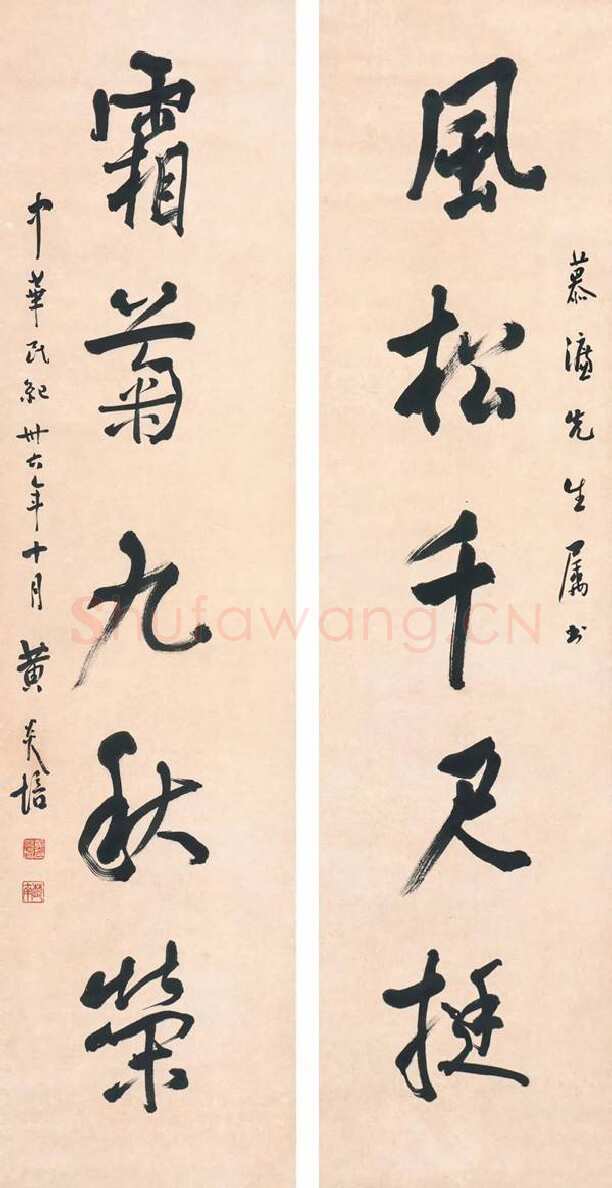 慕濂先生属书
風松千尺挺
霜菊九秋榮
中華民紀卅六年十月黄炎培
Shufawang.CN